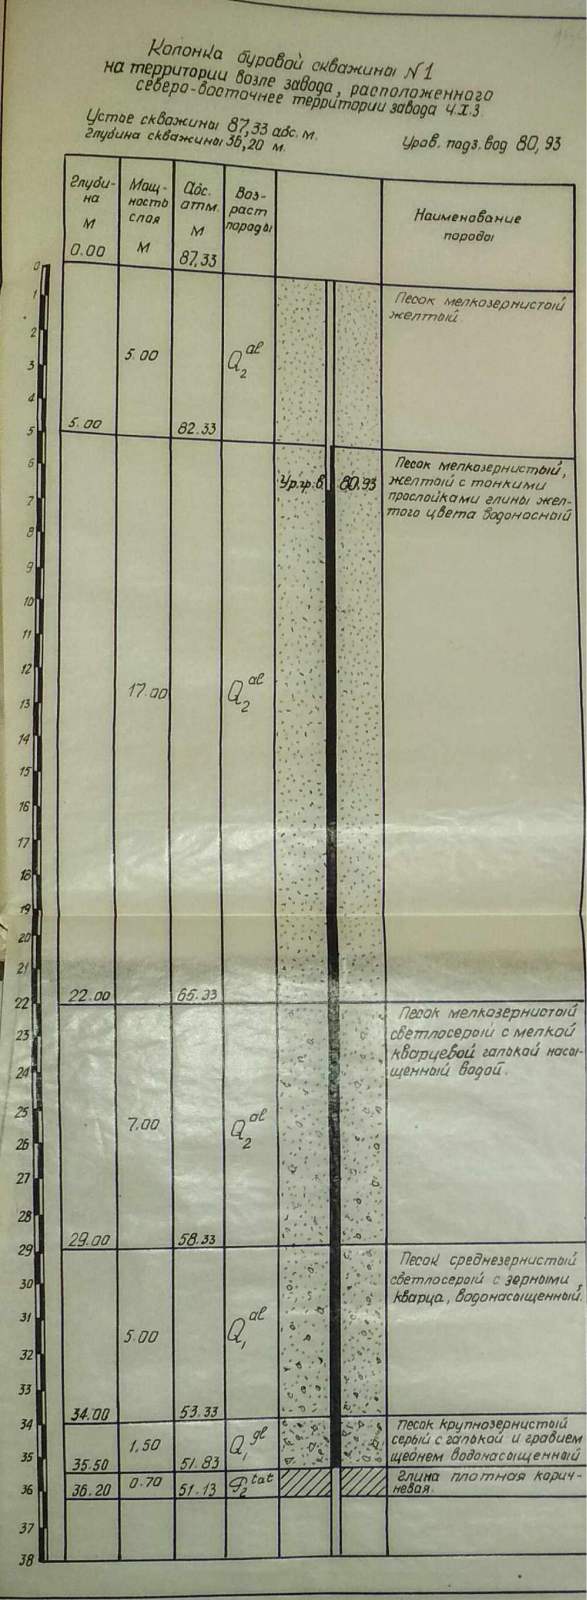 Колонка буровой скважины №1
на территории возле завода, расположенного
северо-восточнее территории завода Ч.Х.З.
Устье скважины 87,33 абс. м.
глубина скважины 36,20 м.
Уров. подз. вод 80,93
Глуби-
на
М
0.00
Мощ-
ность
слоя
М
Абс.
отм.
М
87,33
Воз-
раст
породы
Наименование
породы
0
1
2
3
4
5
6
7
8
9
10
11
12
13
14
15
16
17
18
19
20
21
22
23
24
25
26
27
28
29
30
31
32
33
34
35
36
37
38
5.00
5.00
82.33
Q₂ al
Песок мелкозернистый
желтый
Ур.гр.в. 80.93
22.00
17.00
65.33
Q₂ al
Песок мелкозернистый,
желтый с тонкими
прослойками глины жел-
того цвета водонасный
29.00
7.00
58.33
Q₂ al
Песок мелкозернистый
светлосерый с мелкой
кварцевой галькой насы-
щенный водой.
34.00
5.00
53.33
Q₁ al
Песок среднезернистый
светлосерый с зернами
кварца, водонасыщенный.
35.50
1,50
51.83
Q₁ gl
Песок крупнозернистый
серый с галькой и гравием
щебнем водонасыщенный
36.20
0.70
51.13
P₂ tat
Глина плотная корич-
невая.